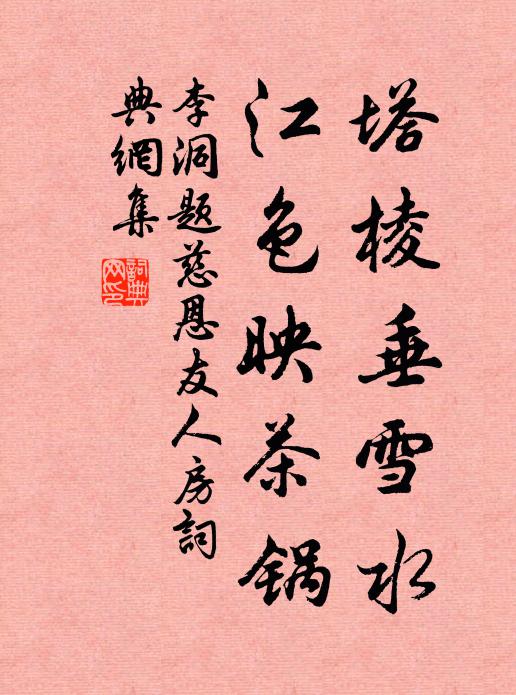 塔棱垂雪水
江色映茶锅
李洞题慈恩友人房詞
典網集
詞典網印